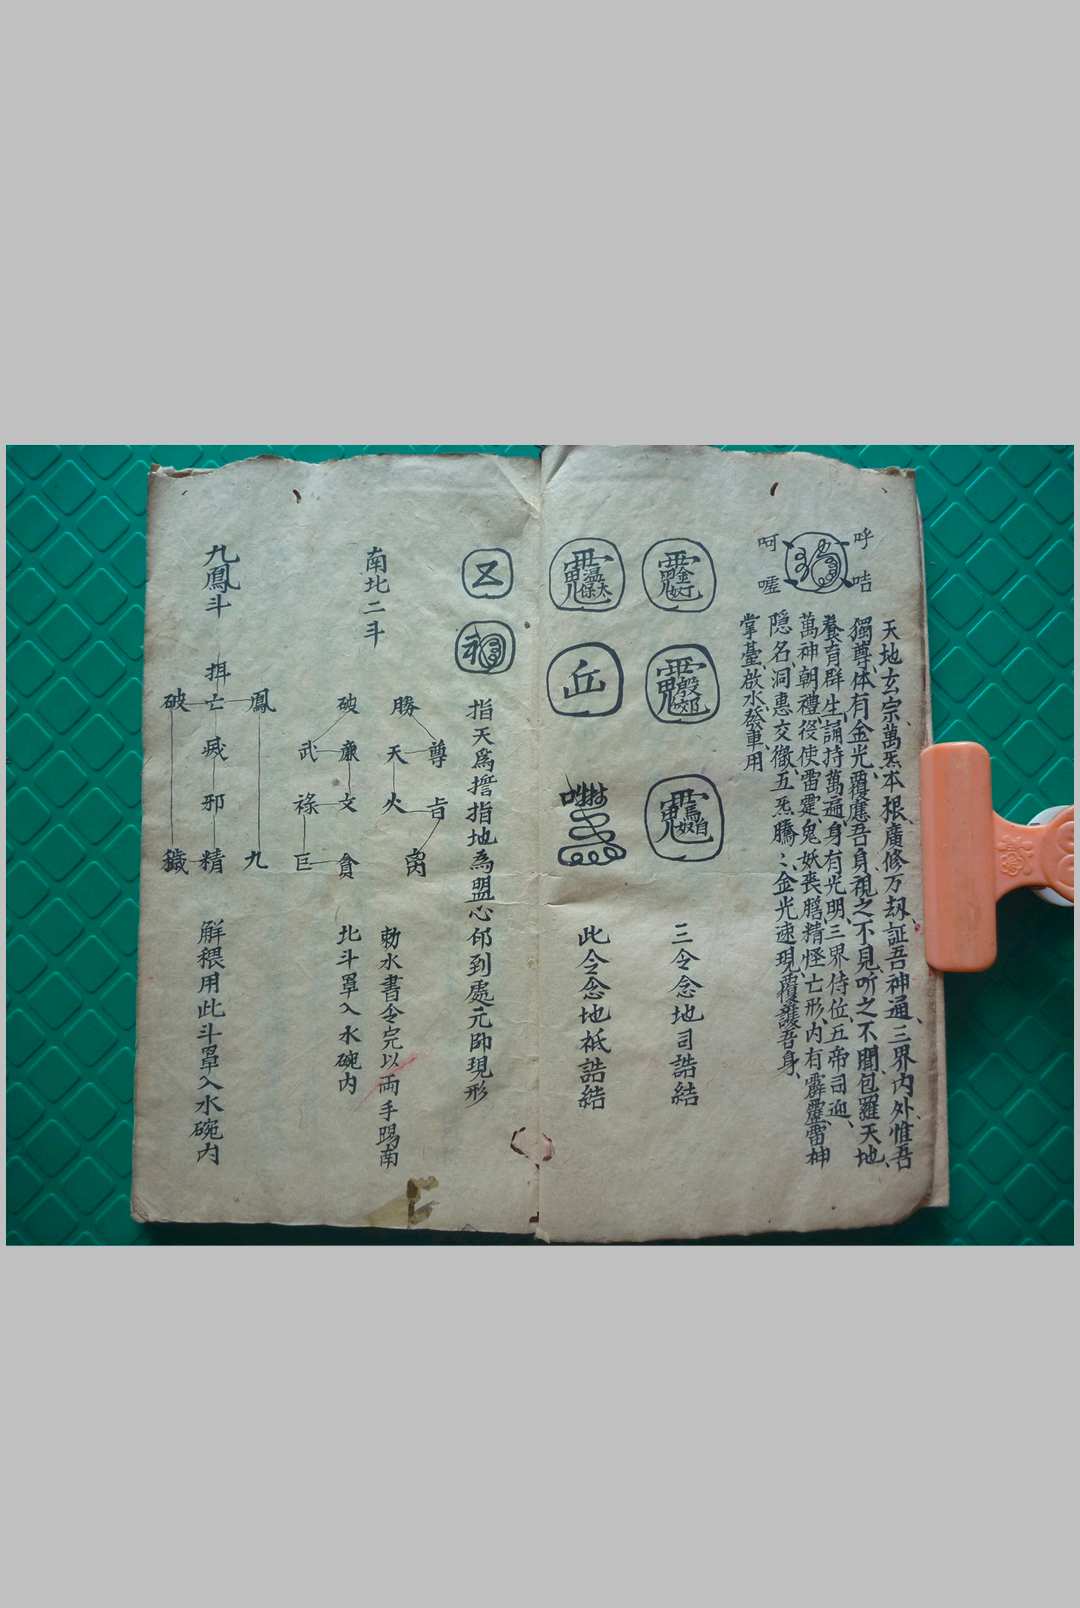 天地玄宗萬炁本根廣修万刼証吾神通三界内外惟吾
獨尊体有金光覆應吾身視之不見听之不聞包羅天地
養育群生誦持萬遍身有光明三界侍位五帝司迎
萬神朝禮役使雷霆鬼妖喪膽精怪亡形内有霹靂雷神
隱名洞惠交徹五炁騰〻金光速現覆護吾身
掌臺啟水發車用
呼 咭
呵 嚧
三令念地司誥結
丘
此令念地祇誥結
五
指天為㨪指地為盟心邱到處元帥現形
南北二斗
勝 尊
天
火
破 廉
武
祿 文
巨 貪
勅水書令完以両手踢南
北斗罩入水碗内
九鳳斗
鳳 九
亡
邪
精
破 穢
解穢用此斗罩入水碗内